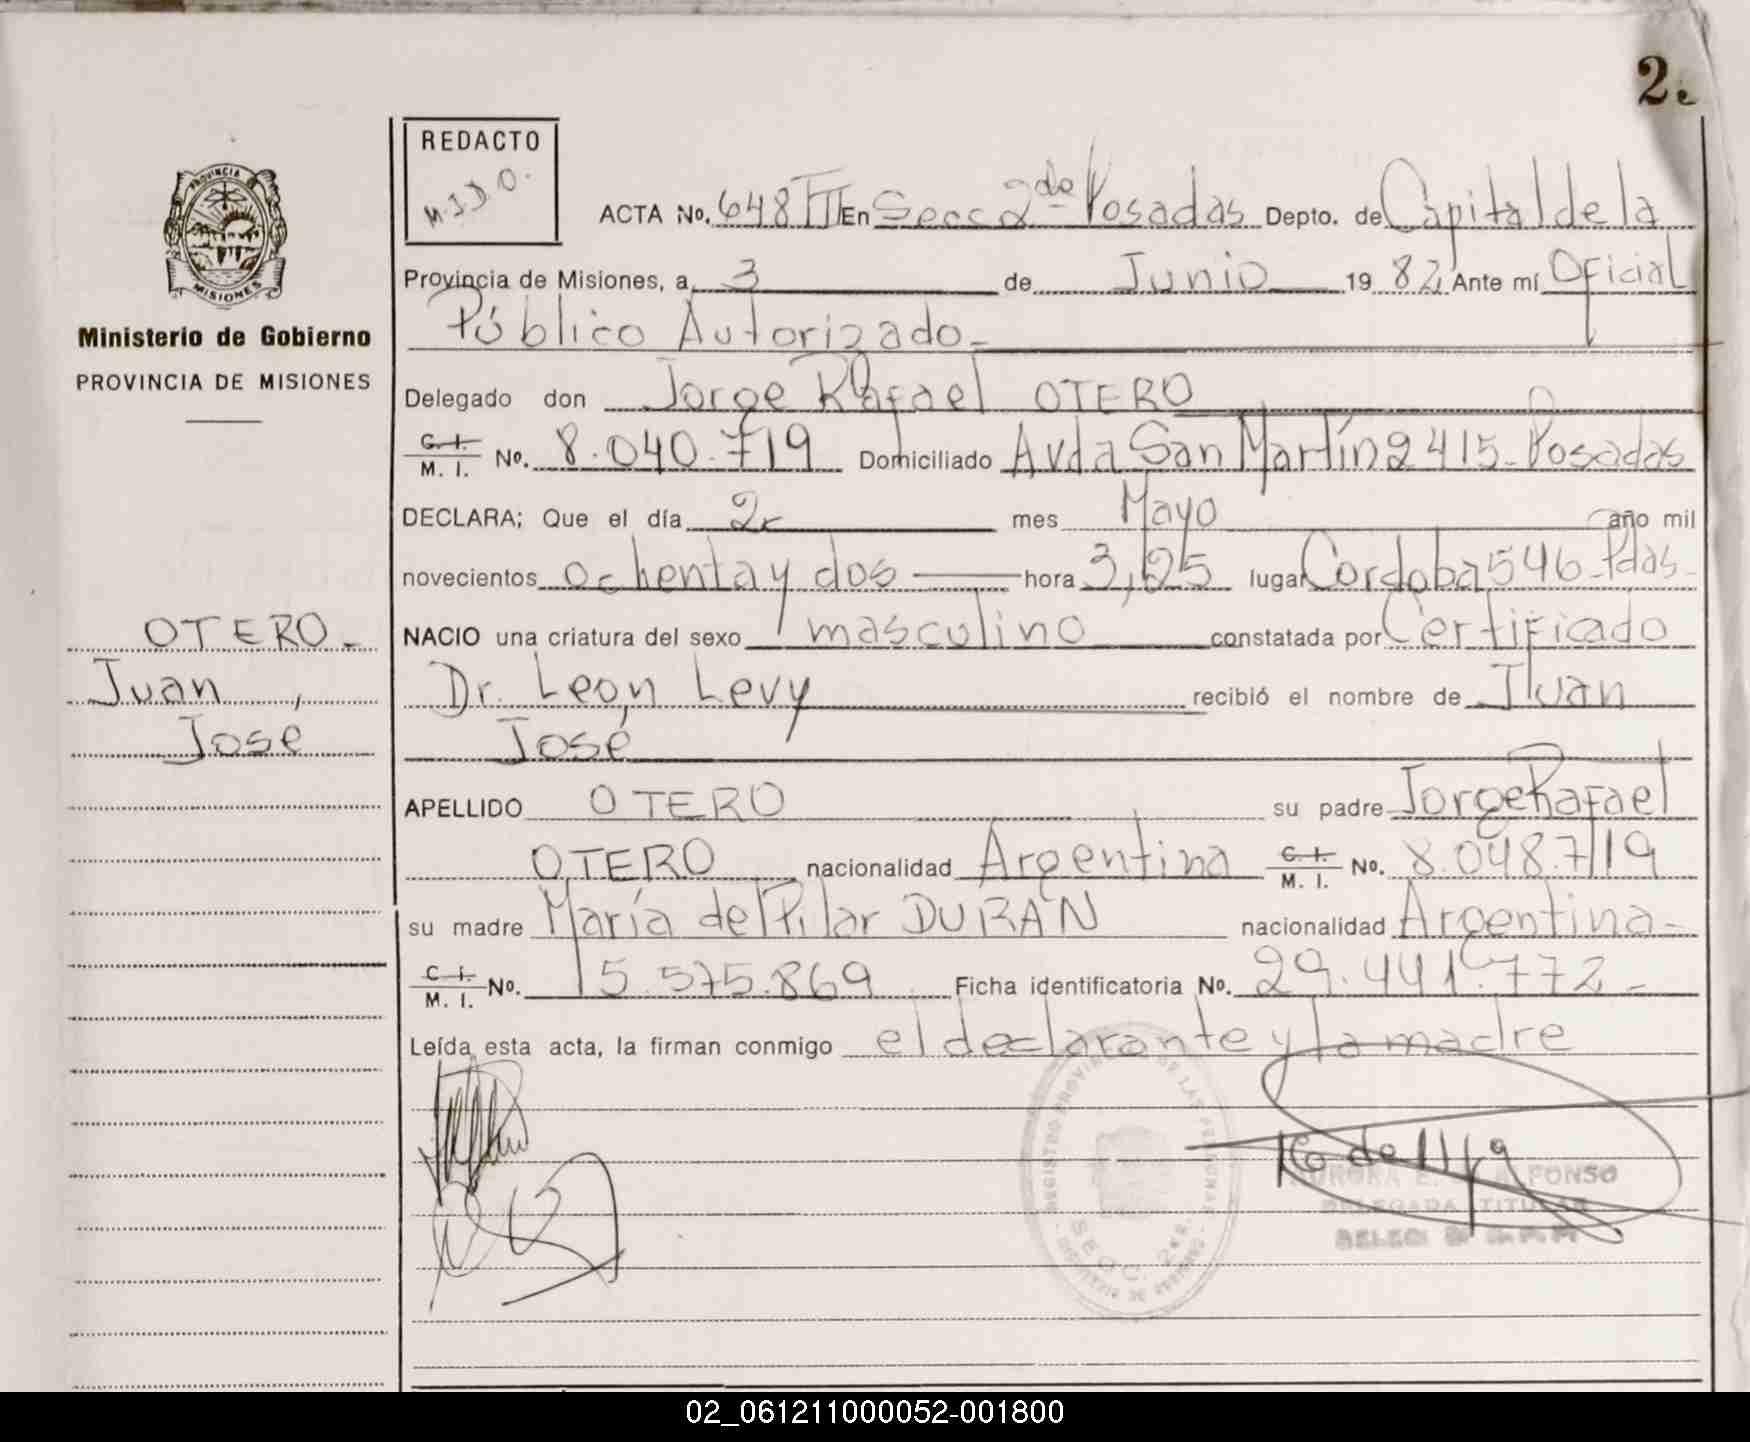 2.
REDACTO
M.J.D.O.
PROVINCIA DE
MISIONES
ACTA No. 648 TII En Secc 2da Posadas Depto. de Capital de la
Provincia de Misiones, a 3 de Junio 19 82, Ante mí Oficial
Ministerio de Gobierno
Público Autorizado
PROVINCIA DE MISIONES
Delegado don Jorge Rafael OTERO
C. I.
M. I. No. 8.040.719 Domiciliado Avda San Martín 2415 - Posadas
DECLARA; Que el día 2 mes Mayo año mil
novecientos ochenta y dos hora 3,25 lugar Cordoba 546 - Pdas -
OTERO -
NACIO una criatura del sexo masculino constatada por Certificado
Juan,
Dr. Leon Levy recibió el nombre de Juan
Jose
José
APELLIDO OTERO su padre Jorge Rafael
OTERO nacionalidad Argentina C. I.
M. I. No. 8.048.719
su madre María del Pilar DURAN nacionalidad Argentina -
C. I.
M. I. No. 5.575.869 Ficha identificatoria No. 29.441.772 -
Leída esta acta, la firman conmigo el declarante y la madre
REGISTRO PROVINCIAL DE LAS PERSONAS
SECC. 2da.
AURORA E. ALFONSO
DELEGADA TITULAR
02_061211000052-001800